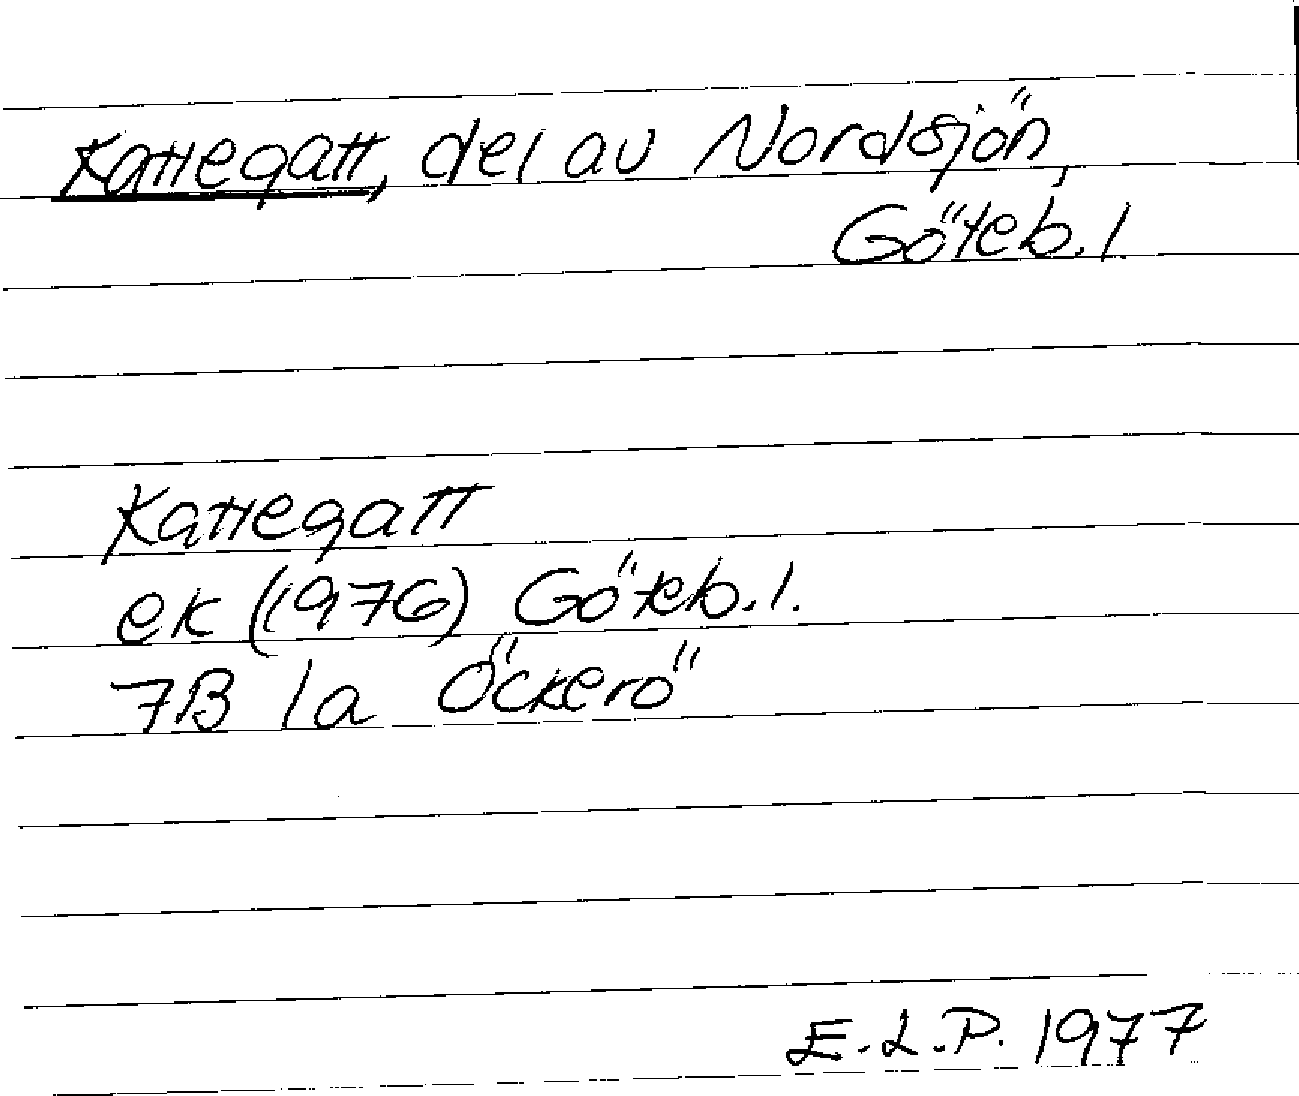 Kattegatt, del av Nordsjön,
Göteb. l.
Kattegatt
ek (1976) Göteb. l.
7B 1a Öckerö
E.L.P. 1977